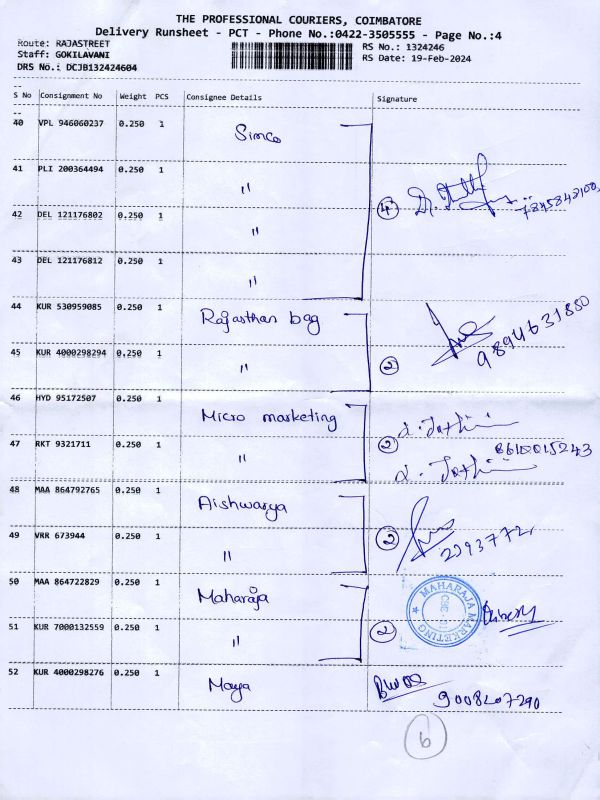 THE PROFESSIONAL COURIERS, COIMBATORE
Delivery Runsheet - PCT - Phone No.:0422-3505555 - Page No.:4
Route: RAJASTREET
Staff: GOKILAVANI
DRS No.: DCJB132424604
RS No.: 1324246
RS Date: 19-Feb-2024
S No Consignment No Weight PCS Consignee Details Signature
40 VPL 946060237 0.250 1 Simco
41 PLI 200364494 0.250 1 "
42 DEL 121176802 0.250 1 " 4
43 DEL 121176812 0.250 1 "
44 KUR 530959085 0.250 1 Rajasthan bag 9894631880
45 KUR 4000298294 0.250 1 " 2
46 HYD 95172507 0.250 1 Micro marketing
47 RKT 9321711 0.250 1 " 2
48 MAA 864792765 0.250 1 Aishwarya
49 VRR 673944 0.250 1 " 2
50 MAA 864722829 0.250 1 Maharaja
MAHARAJA MARKETING
51 KUR 7000132559 0.250 1 " 2
52 KUR 4000298276 0.250 1 Maya
6